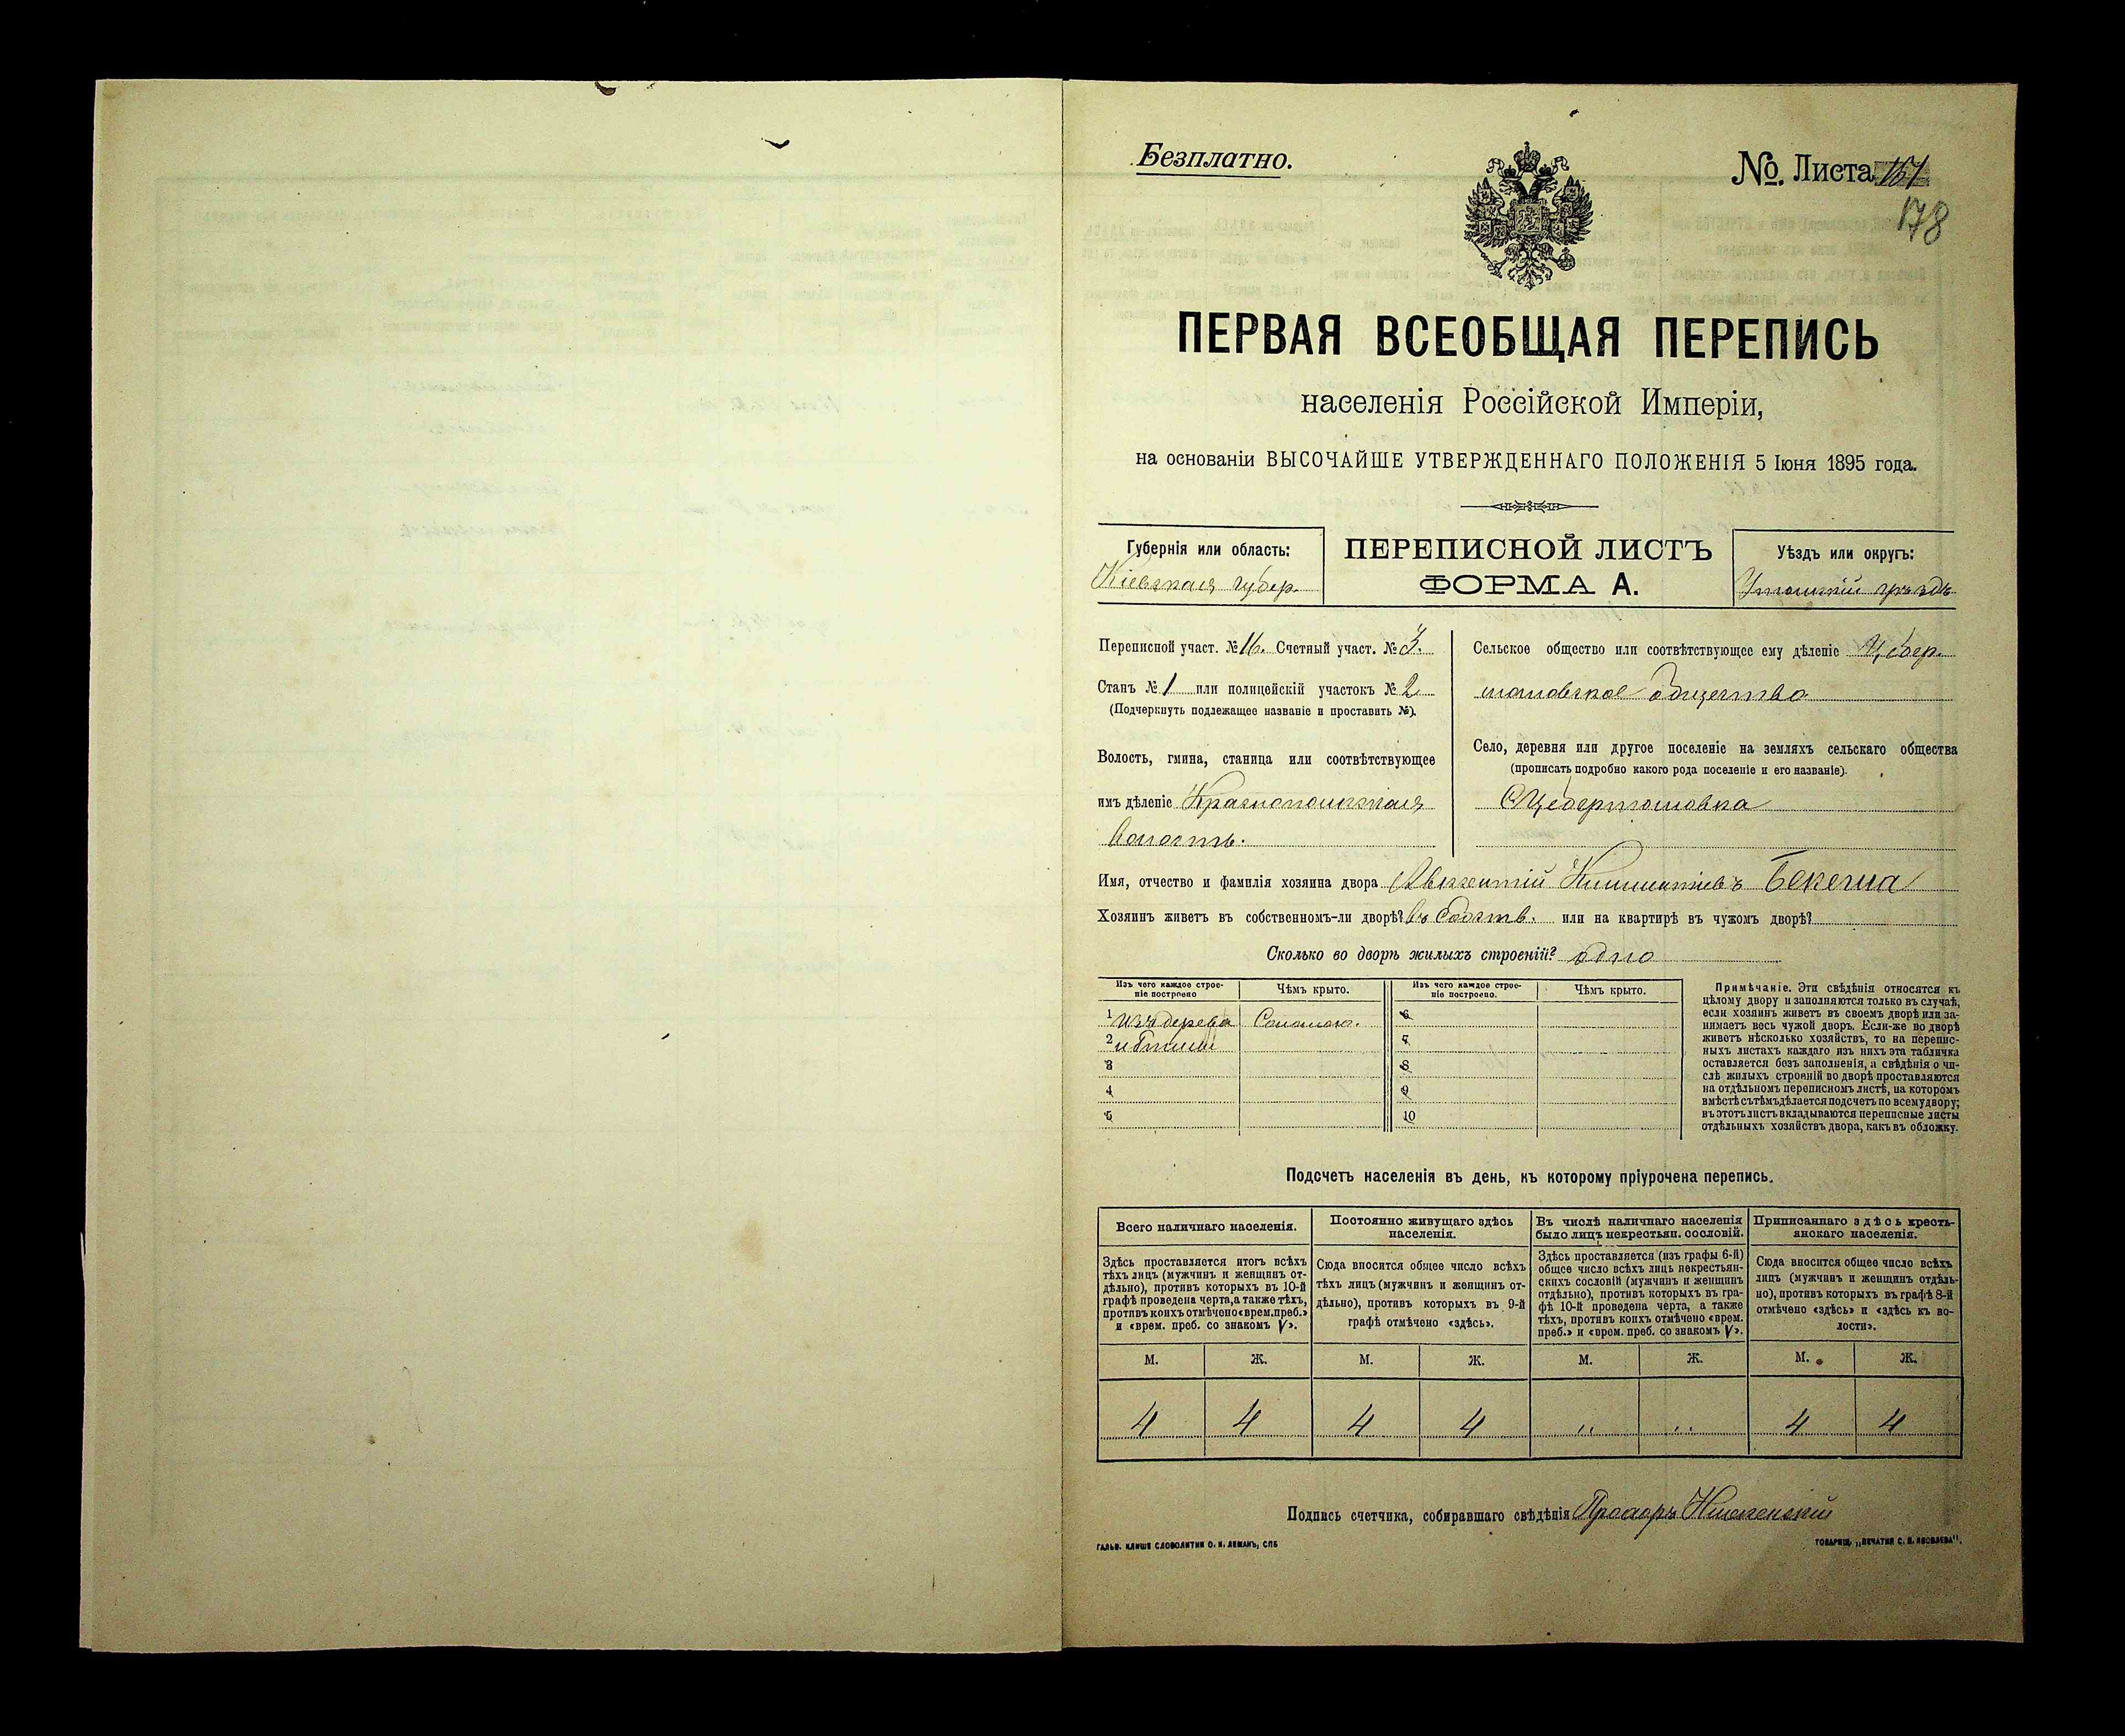 Безплатно.
№ Листа 151
178
ПЕРВАЯ ВСЕОБЩАЯ ПЕРЕПИСЬ
населенія Россійской Имперіи,
на основаніи ВЫСОЧАЙШЕ УТВЕРЖДЕННАГО ПОЛОЖЕНІЯ 5 Іюня 1895 года.
Губернія или область:
Кіевская губер.
ПЕРЕПИСНОЙ ЛИСТЪ
ФОРМА А.
Уѣздъ или округъ:
Уманскій уѣздъ
Переписной участ. № 16. Счетный участ. № 3.
Станъ № 1 или полицейскій участокъ № 2
(Подчеркнуть подлежащее названіе и проставить №).
Волость, гмина, станица или соотвѣтствующее
имъ дѣленіе Краснопольская
волость.
Сельское общество или соотвѣтствующее ему дѣленіе
общество
Село, деревня или другое поселеніе на земляхъ сельскаго общества
(прописать подробно какого рода поселеніе и его названіе).
Имя, отчество и фамилія хозяина двора Авксентій Бекеша
Хозяинъ живетъ въ собственномъ-ли дворѣ? въ собств. или на квартирѣ въ чужомъ дворѣ?
Сколько во дворѣ жилыхъ строеній? одно
Изъ чего каждое строеніе построено
Чѣмъ крыто.
Изъ чего каждое строеніе построено.
Чѣмъ крыто.
1 изъ дерева Соломою. 6
2 и глины 7
3 8
4 9
5 10
Примѣчаніе. Эти свѣдѣнія относятся къ
цѣлому двору и заполняются только въ случаѣ,
если хозяинъ живетъ въ своемъ дворѣ или за-
нимаетъ весь чужой дворъ. Если-же во дворѣ
живетъ нѣсколько хозяйствъ, то на перепис-
ныхъ листахъ каждаго изъ нихъ эта табличка
оставляется безъ заполненія, а свѣдѣнія о чи-
слѣ жилыхъ строеній во дворѣ проставляются
на отдѣльномъ переписномъ листѣ, на которомъ
вмѣстѣ съ тѣмъ дѣлается подсчетъ по всему двору;
въ этотъ листъ вкладываются переписные листы
отдѣльныхъ хозяйствъ двора, какъ въ обложку.
Подсчетъ населенія въ день, къ которому пріурочена перепись.
Всего наличнаго населенія.
Здѣсь проставляется итогъ всѣхъ
тѣхъ лицъ (мужчинъ и женщинъ от-
дѣльно), противъ которыхъ въ 10-й
графѣ проведена черта, а также тѣхъ,
противъ коихъ отмѣчено «врем. преб.»
и «врем. преб. со знакомъ V».
Постоянно живущаго здѣсь
населенія.
Сюда вносится общее число всѣхъ
тѣхъ лицъ (мужчинъ и женщинъ от-
дѣльно), противъ которыхъ въ 9-й
графѣ отмѣчено «здѣсь».
Въ числѣ наличнаго населенія
было лицъ некрестьян. сословій.
Здѣсь проставляется (изъ графы 6-й)
общее число всѣхъ лицъ некрестьян-
скихъ сословій (мужчинъ и женщинъ
отдѣльно), противъ которыхъ въ гра-
фѣ 10-й проведена черта, а также
тѣхъ, противъ коихъ отмѣчено «врем.
преб.» и «врем. преб. со знакомъ V».
Приписаннаго здѣсь кресть-
янскаго населенія.
Сюда вносится общее число всѣхъ
лицъ (мужчинъ и женщинъ отдѣль-
но), противъ которыхъ въ графѣ 8-й
отмѣчено «здѣсь» и «здѣсь къ во-
лости».
М. Ж. М. Ж. М. Ж. М. Ж.
4 4 4 4 " " 4 4
Подпись счетчика, собиравшаго свѣдѣнія Прохоръ
ГАЛЬВ. КЛИШЕ СЛОВОЛИТНИ О. И. ЛЕМАНЪ, СПБ
ТОВАРИЩ. „ПЕЧАТНЯ С. П. ЯКОВЛЕВА".